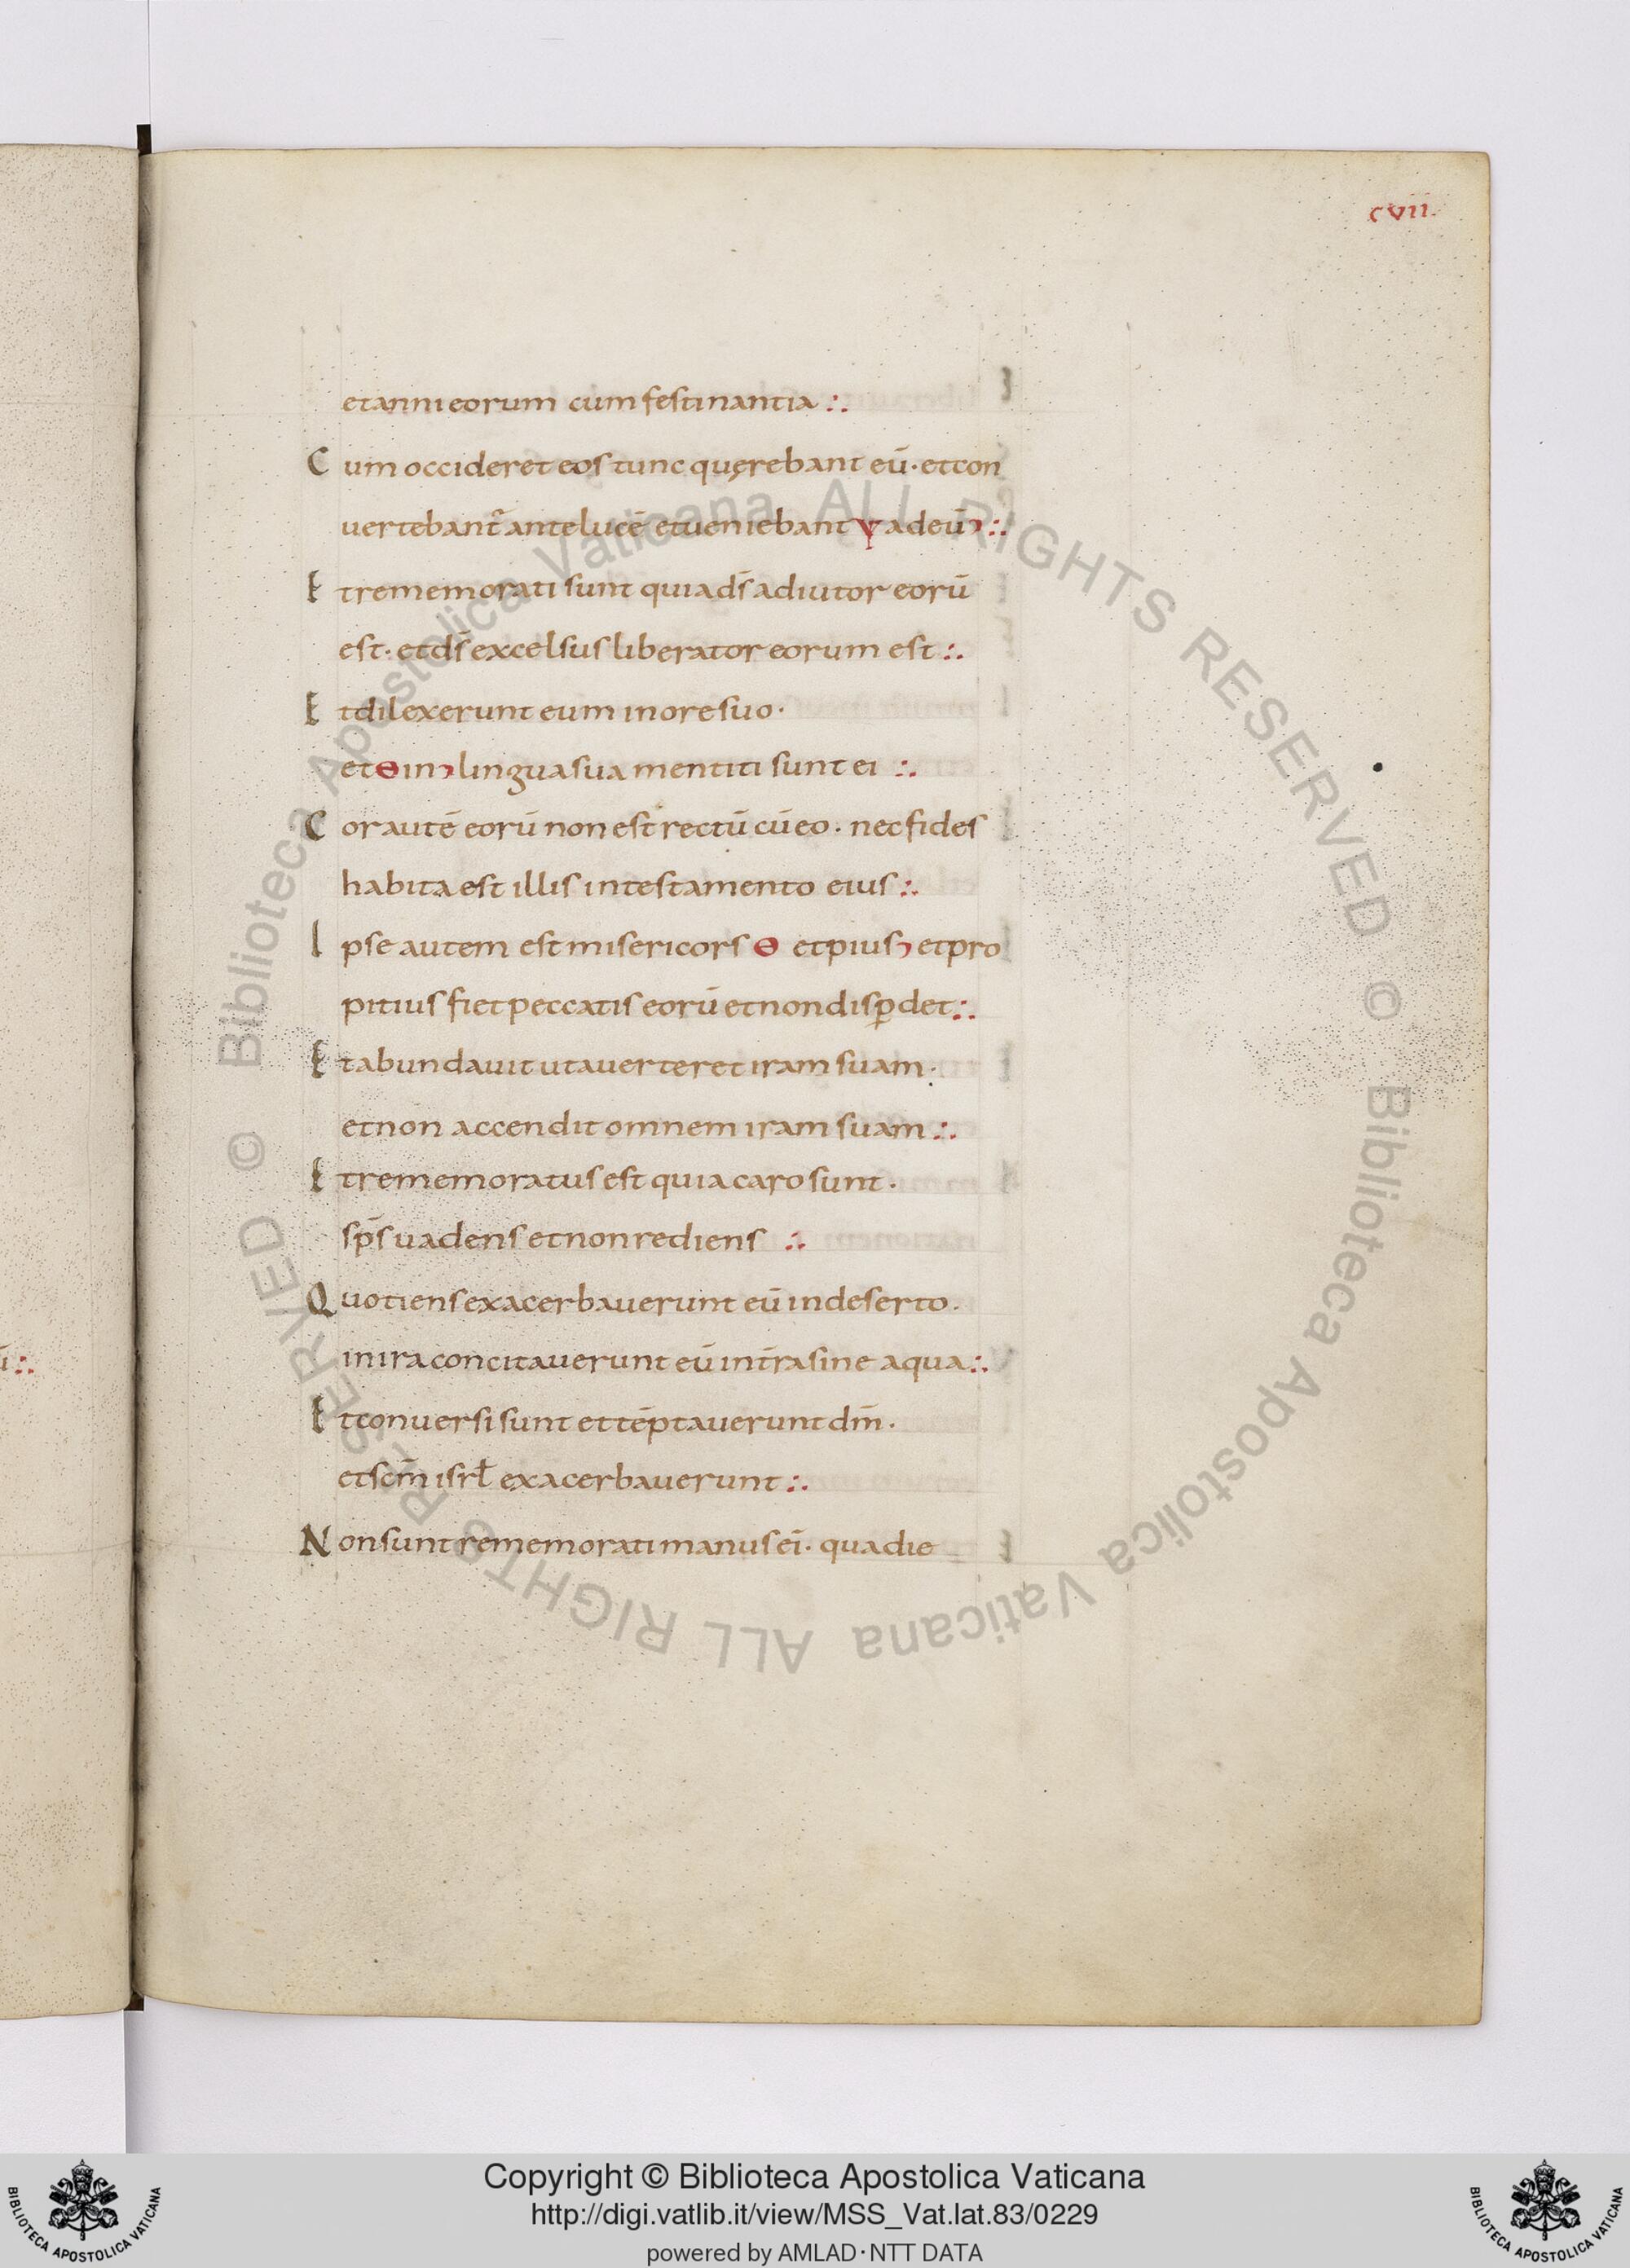 cvii.
et anni eorum cum festinantia :.
Cum occideret eos tunc quęrebant eū · et con
vertebant᷑ ante lucē et veniebant ÷ ad eū› :.
Et rememorati sunt quia ds̄ adiutor eorū
est · et ds̄ excelsus liberator eorum est :.
Et dilexerunt eum in ore suo ·
et ÷ in› lingua sua mentiti sunt ei :.
Cor autē eorū non est rectū cū eo · nec fides
habita est illis in testamento eius :.
Ipse autem est misericors ÷ et pius› et pro
pitius fiet peccatis eorū et non disꝑdet :.
Et abundavit ut averteret iram suam ·
et non accendit omnem iram suam :.
Et rememoratus est quia caro sunt ·
sp̄s vadens et non rediens :.
Quotiens exacerbaverunt eū in deserto ·
in ira concitaverunt eū in t̄ra sine aqua :.
Et conversi sunt et tēptaverunt dm̄ ·
et scm̄ isrł exacerbaverunt :.
Non sunt rememorati manus eī · qua die
ū :.
© Biblioteca Apostolica Vaticana ALL RIGHTS RESERVED © Biblioteca Apostolica Vaticana ALL RIGHTS RESERVED
BIBLIOTECA APOSTOLICA VATICANA
Copyright © Biblioteca Apostolica Vaticana
http://digi.vatlib.it/view/MSS_Vat.lat.83/0229
powered by AMLAD·NTT DATA
BIBLIOTECA APOSTOLICA VATICANA